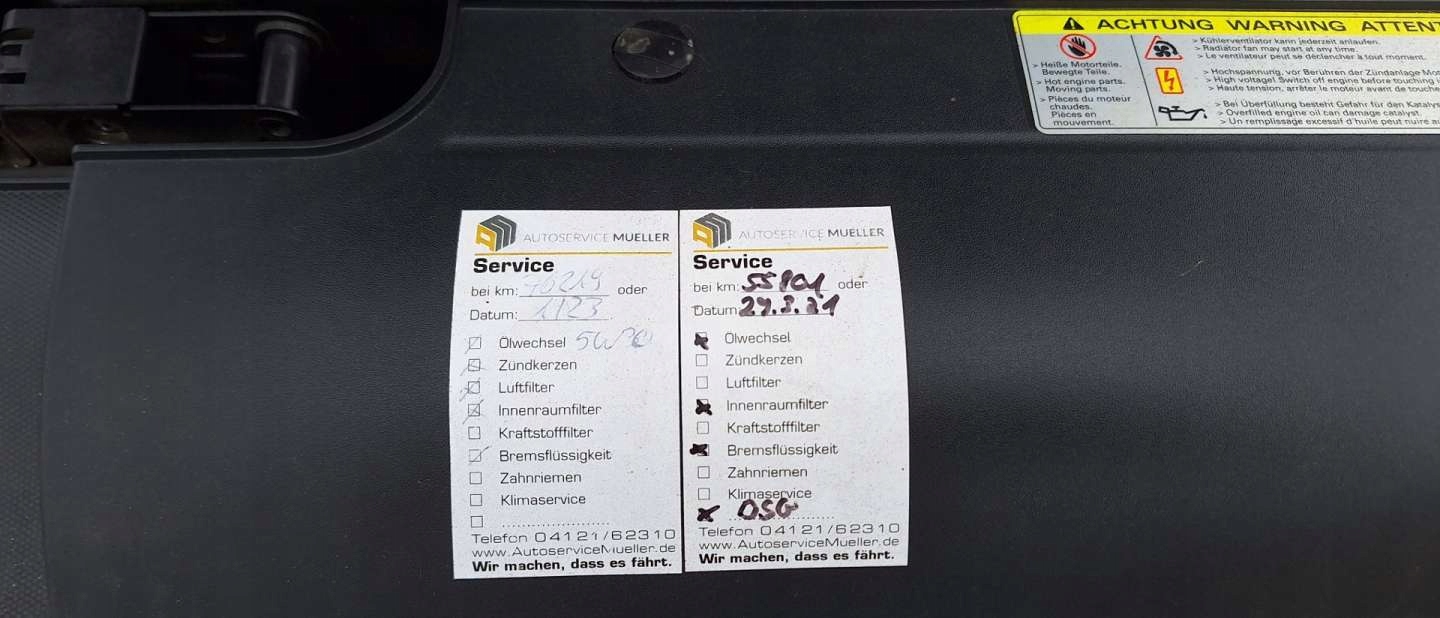 ACHTUNG WARNING ATTENT
> Heiße Motorteile.
Bewegte Teile.
> Hot engine parts.
Moving parts.
> Pièces du moteur
chaudes.
Pièces en
mouvement.
> Kühlerventilator kann jederzeit anlaufen.
> Radiator fan may start at any time.
> Le ventilateur peut se déclencher à tout moment.
> Hochspannung, vor Berühren der Zündanlage Mot
> High voltage! Switch off engine before touching i
> Haute tension, arrêter le moteur avant de touche
> Bei Überfüllung besteht Gefahr für den Katalys
> Overfilled engine oil can damage catalyst.
> Un remplissage excessif d'huile peut nuire au
AUTOSERVICE MUELLER
Service
bei km: 70219 oder
Datum: 1/23
Ölwechsel 5W30
Zündkerzen
Luftfilter
Innenraumfilter
Kraftstofffilter
Bremsflüssigkeit
Zahnriemen
Klimaservice
Telefon 04121/62310
www.AutoserviceMueller.de
Wir machen, dass es fährt.
AUTOSERVICE MUELLER
Service
bei km: 55801 oder
Datum: 29.3.21
Ölwechsel
Zündkerzen
Luftfilter
Innenraumfilter
Kraftstofffilter
Bremsflüssigkeit
Zahnriemen
Klimaservice
DSG
Telefon 04121/62310
www.AutoserviceMueller.de
Wir machen, dass es fährt.